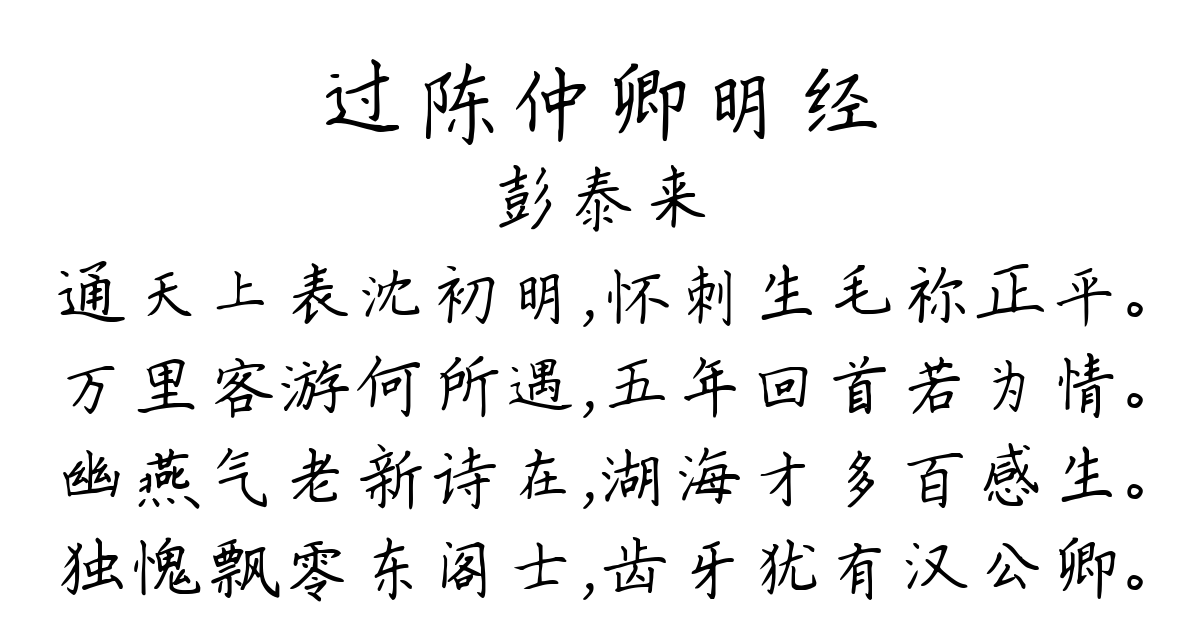 过陈仲卿明经
彭泰来
通天上表沈初明,怀刺生毛祢正平。
万里客游何所遇,五年回首若为情。
幽燕气老新诗在,湖海才多百感生。
独愧飘零东阁士,齿牙犹有汉公卿。